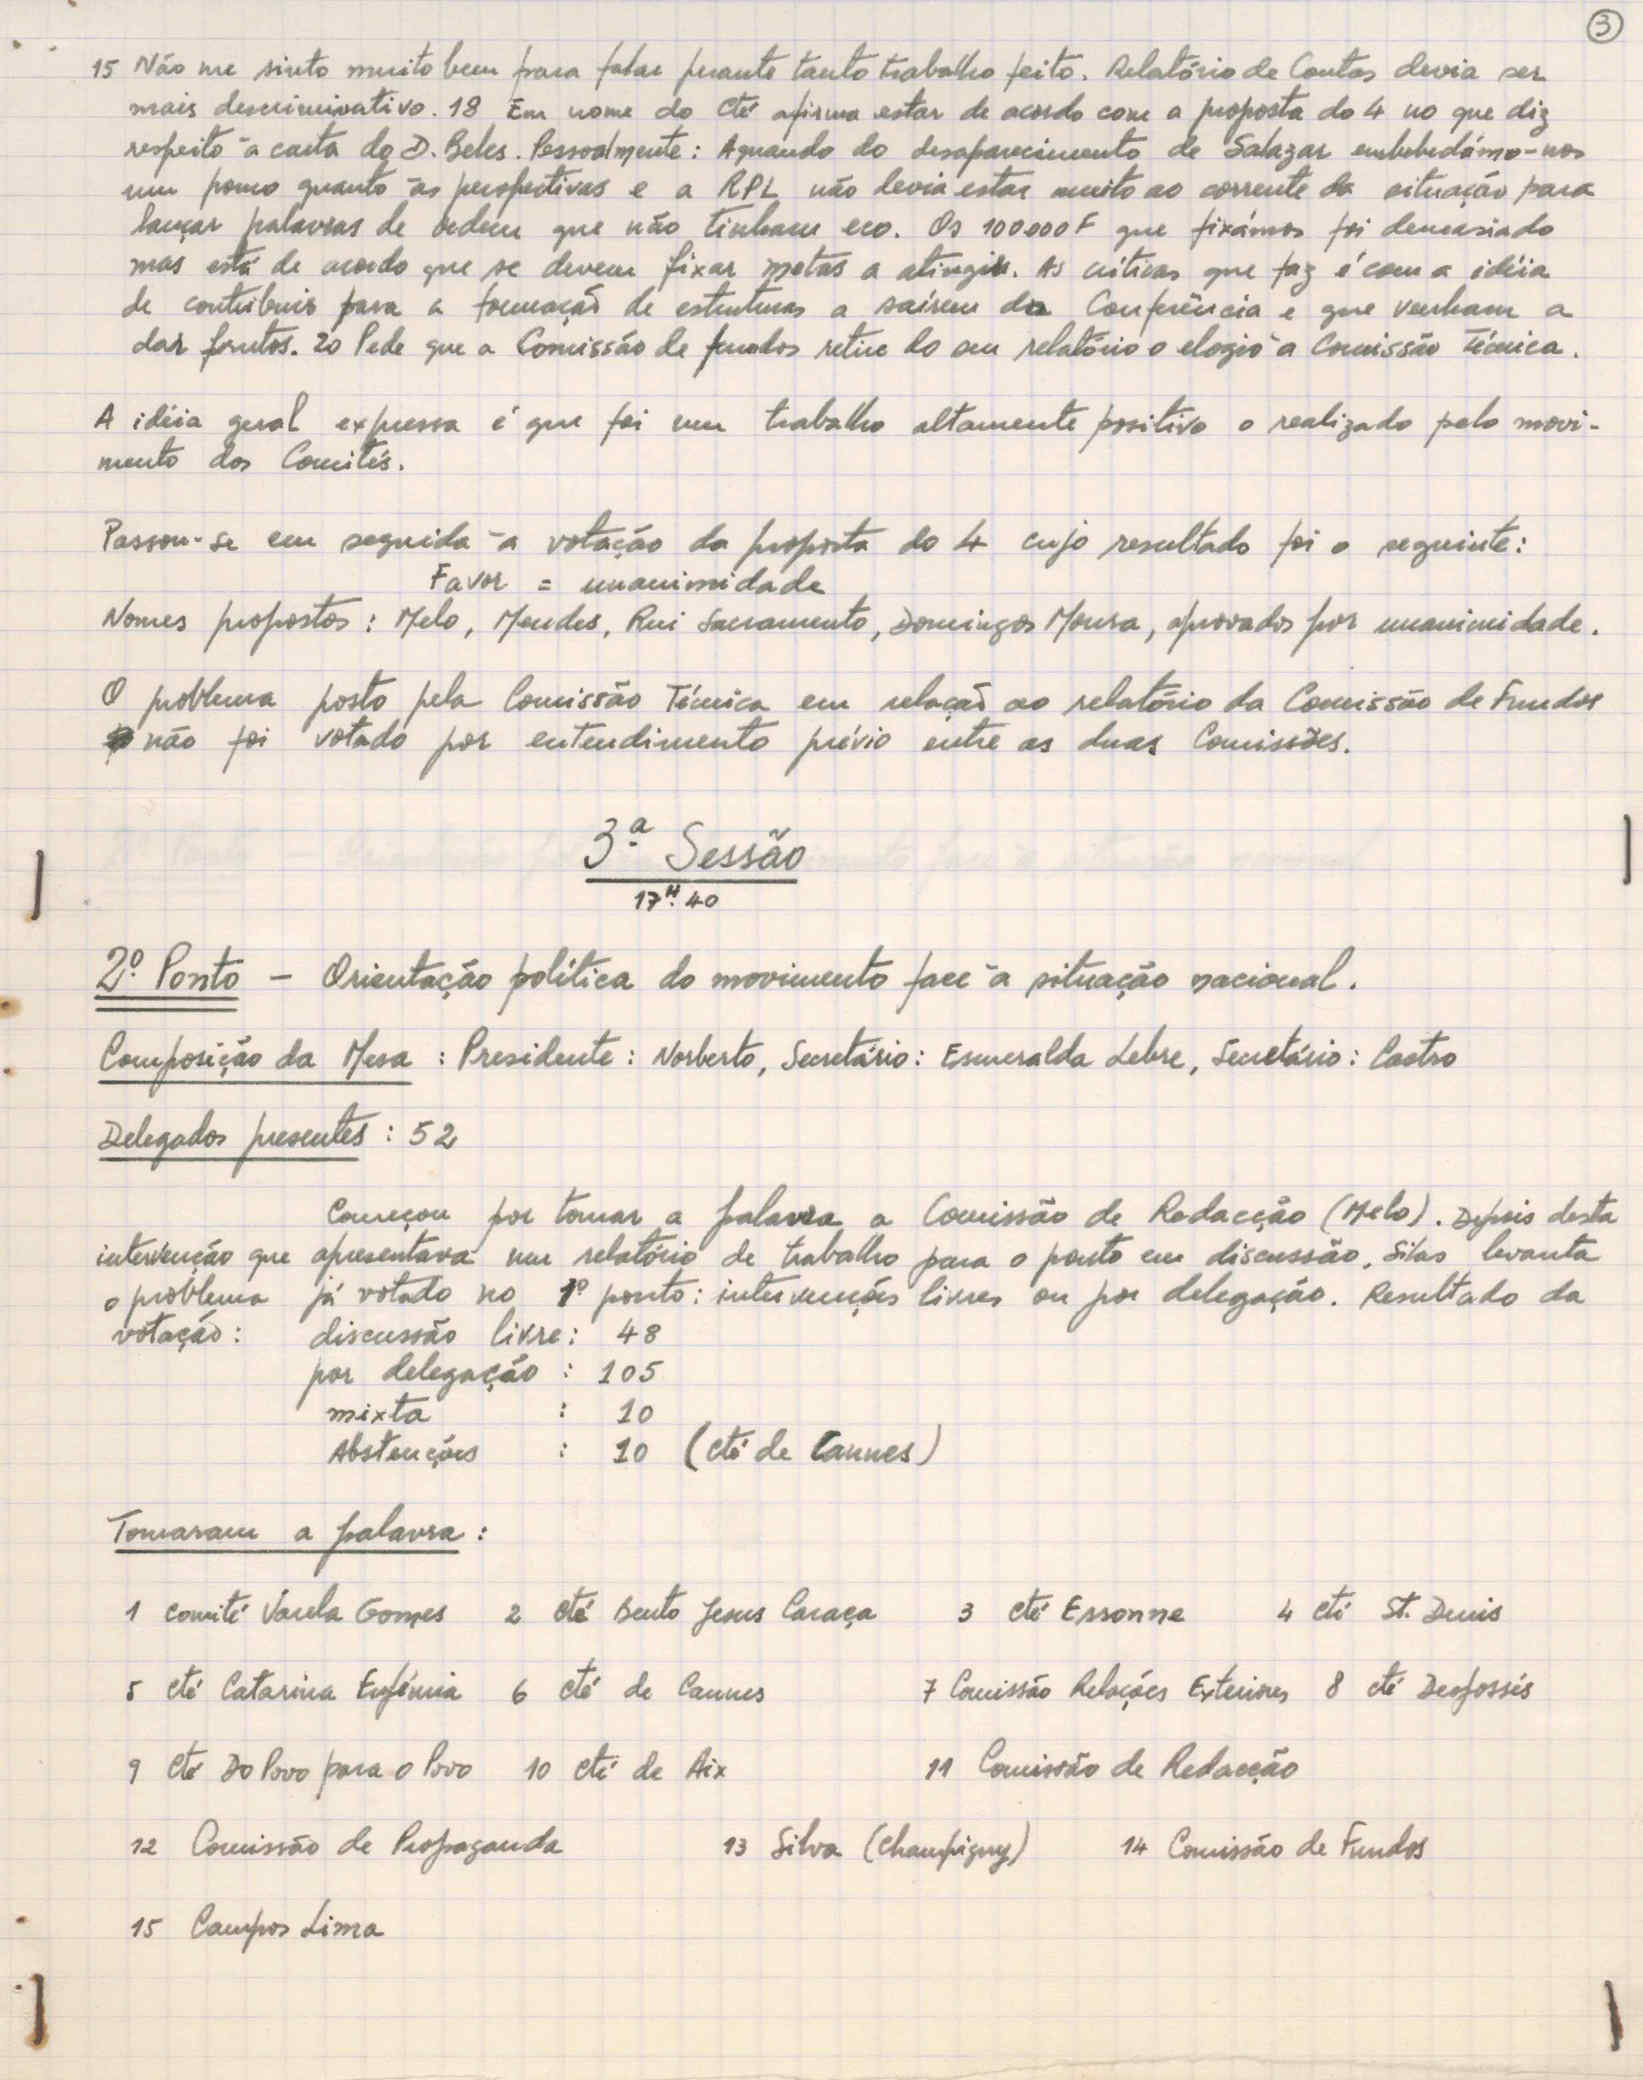 3
15 Não me sinto muito bem para falar perante tanto trabalho feito. Relatório de Contas devia ser
mais descriminativo. 18 Em nome do Cté afirma estar de acordo com a proposta do 4 no que diz
respeito à carta do D. Beles. Pessoalmente: Aquando do desaparecimento de Salazar embebedámo-nos
um pouco quanto às perspectivas e a RPL não devia estar muito ao corrente da situação para
lançar palavras de ordem que não tinham eco. Os 100000F que fixámos foi demasiado
mas está de acordo que se devem fixar metas a atingir. As críticas que faz é com a idéia
de contribuir para a formação de estruturas a saírem da Conferência e que venham a
dar frutos. 20 Pede que a Comissão de fundos retire do seu relatório o elogio à Comissão Técnica.
A idéia geral expressa é que foi um trabalho altamente positivo o realizado pelo movi-
mento dos Comités.
Passou-se em seguida à votação da proposta do 4 cujo resultado foi o seguinte:
Favor = unanimidade
Nomes propostos: Melo, Mendes, Rui Sacramento, Domingos Moura, aprovados por unanimidade.
O problema posto pela Comissão Técnica em relação ao relatório da Comissão de Fundos
não foi votado por entendimento prévio entre as duas Comissões.
3.ª Sessão
17H.40
2º. Ponto - Orientação política do movimento face à situação nacional.
Composição da Mesa : Presidente : Norberto, Secretário : Esmeralda Lebre, Secretário : Castro
Delegados presentes : 52
Começou por tomar a palavra a Comissão de Redacção (Melo). Depois desta
intervenção que apresentava um relatório de trabalho para o ponto em discussão, Silas levanta
o problema já votado no 1º ponto: intervenções livres ou por delegação. Resultado da
votação: discussão livre: 48
por delegação : 105
mixta : 10
Abstenções : 10 (cté de Cannes)
Tomaram a palavra :
1 comité Varela Gomes 2 cté Bento Jesus Caraça 3 cté Essonne 4 cté St. Denis
5 cté Catarina Eufémia 6 cté de Cannes 7 Comissão Relações Exteriores 8 cté Desfossés
9 cté Do Povo para o Povo 10 cté de Aix 11 Comissão de Redacção
12 Comissão de Propaganda 13 Silva (Champigny) 14 Comissão de Fundos
15 Campos Lima